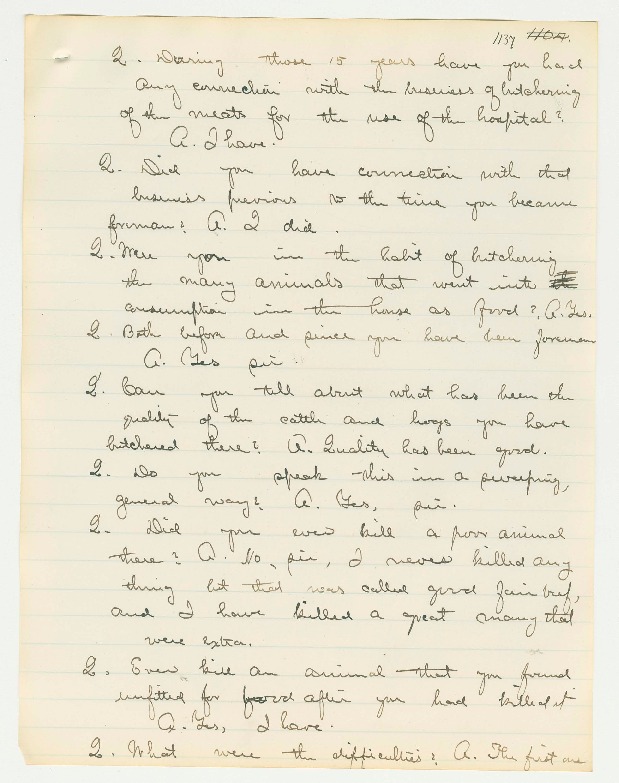 1137 1104.
Q. During those 15 years have you had
any connection with the business of butchering
of the meats for the use of the hospital?
A. I have.
Q. Did you have connection with that
business previous to the time you became
foreman? A. I did.
Q. Were you in the habit of butchering
the many animals that went into the
consumption in the house as food? A. Yes.
Q. Both before and since you have been foreman
A. Yes sir.
Q. Can you tell about what has been the
quality of the cattle and hogs you have
butchered there? A. Quality has been good.
Q. Do you speak this in a sweeping,
general way? A. Yes, sir.
Q. Did you ever kill a poor animal
there? A. No, sir, I never killed any
thing but that was called good fair beef,
and I have killed a great many that
were extra.
Q. Ever kill an animal that you found
unfitted for food after you had killed it
A. Yes, I have.
Q. What were the difficulties? A. The first one